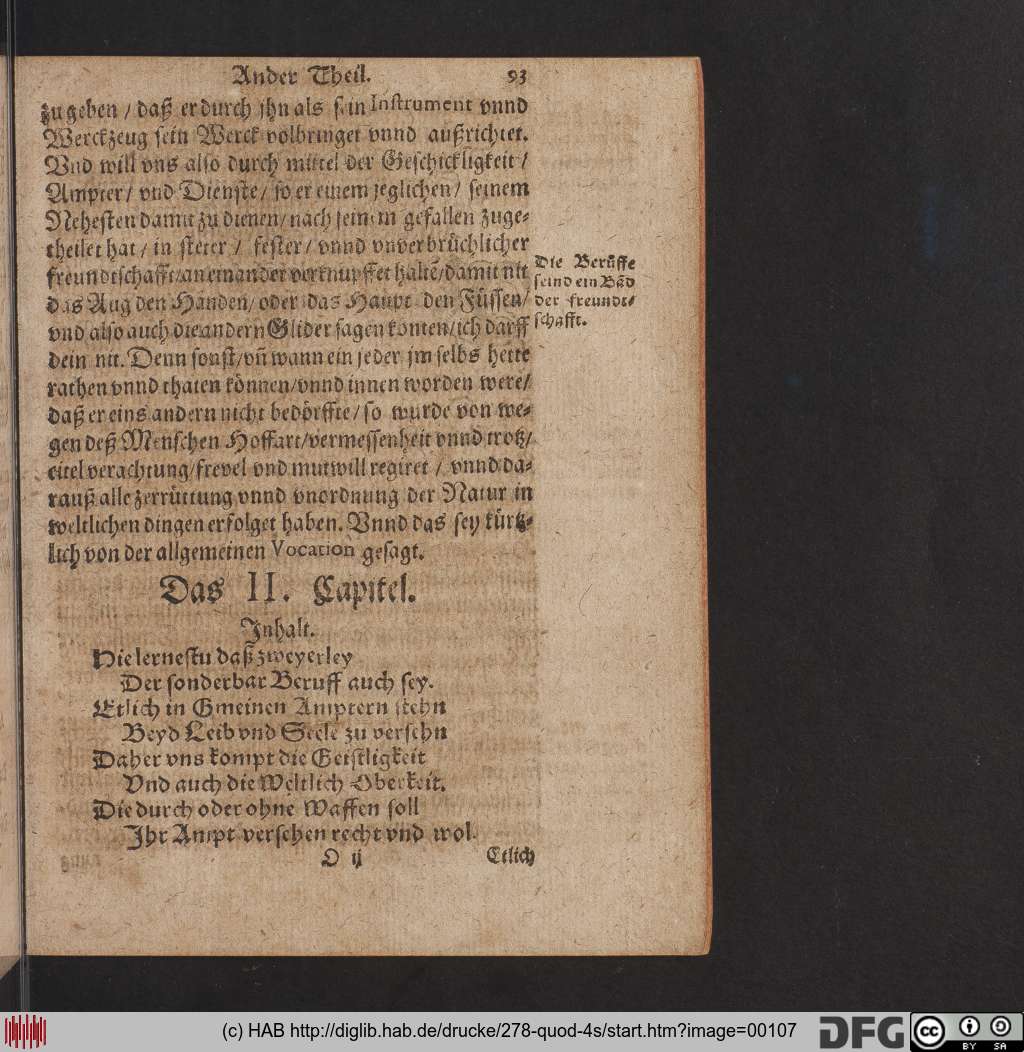 Ander Theil. 93
zu geben / daß er durch jhn als sein Instrument vnnd
Werckzeug sein Werck volbringet vnnd außrichtet.
Vnd will vns also durch mittel der Geschickligkeit /
Ampter / vnd Dienste / so er einem jeglichen / seinem
Nehesten damit zu dienen / nach seinem gefallen zuge-
theilet hat / in steter / fester / vnnd vnverbrüchlicher
freundtschafft / aneinander verknüpffet haltē / damit nit
das Aug den Händen / oder das Haupt den Füssen /
vnd also auch die andern Glider sagen könten / ich darff
dein nit. Denn sonst / vñ wann ein jeder jm selbs hette
rathen vnnd thaten können / vnnd innen worden were /
daß er eins andern nicht bedörffte / so wurde von we-
gen deß Menschen Hoffart / vermessenheit vnnd trotz /
eitel verachtung / frevel vnd mutwill regiret / vnnd da-
rauß alle zerrüttung vnnd vnordnung der Natur in
weltlichen dingen erfolget haben. Vnnd das sey kürtz-
lich von der allgemeinen Vocation gesagt.
Die Berüffe
seind ein Bād
der freundt-
schafft.
Das II. Capitel.
Inhalt.
Hie lernestu daß zweyerley
Der sonderbar Beruff auch sey.
Etlich in Gmeinen Amptern stehn
Beyd Leib vnd Seele zu versehn
Daher vns kompt die Geistligkeit
Vnd auch die Weltlich Oberkeit.
Die durch oder ohne Waffen soll
Ihr Ampt versehen recht vnd wol
O ij Etlich
(c) HAB http://diglib.hab.de/drucke/278-quod-4s/start.htm?image=00107
DFG
cc BY SA